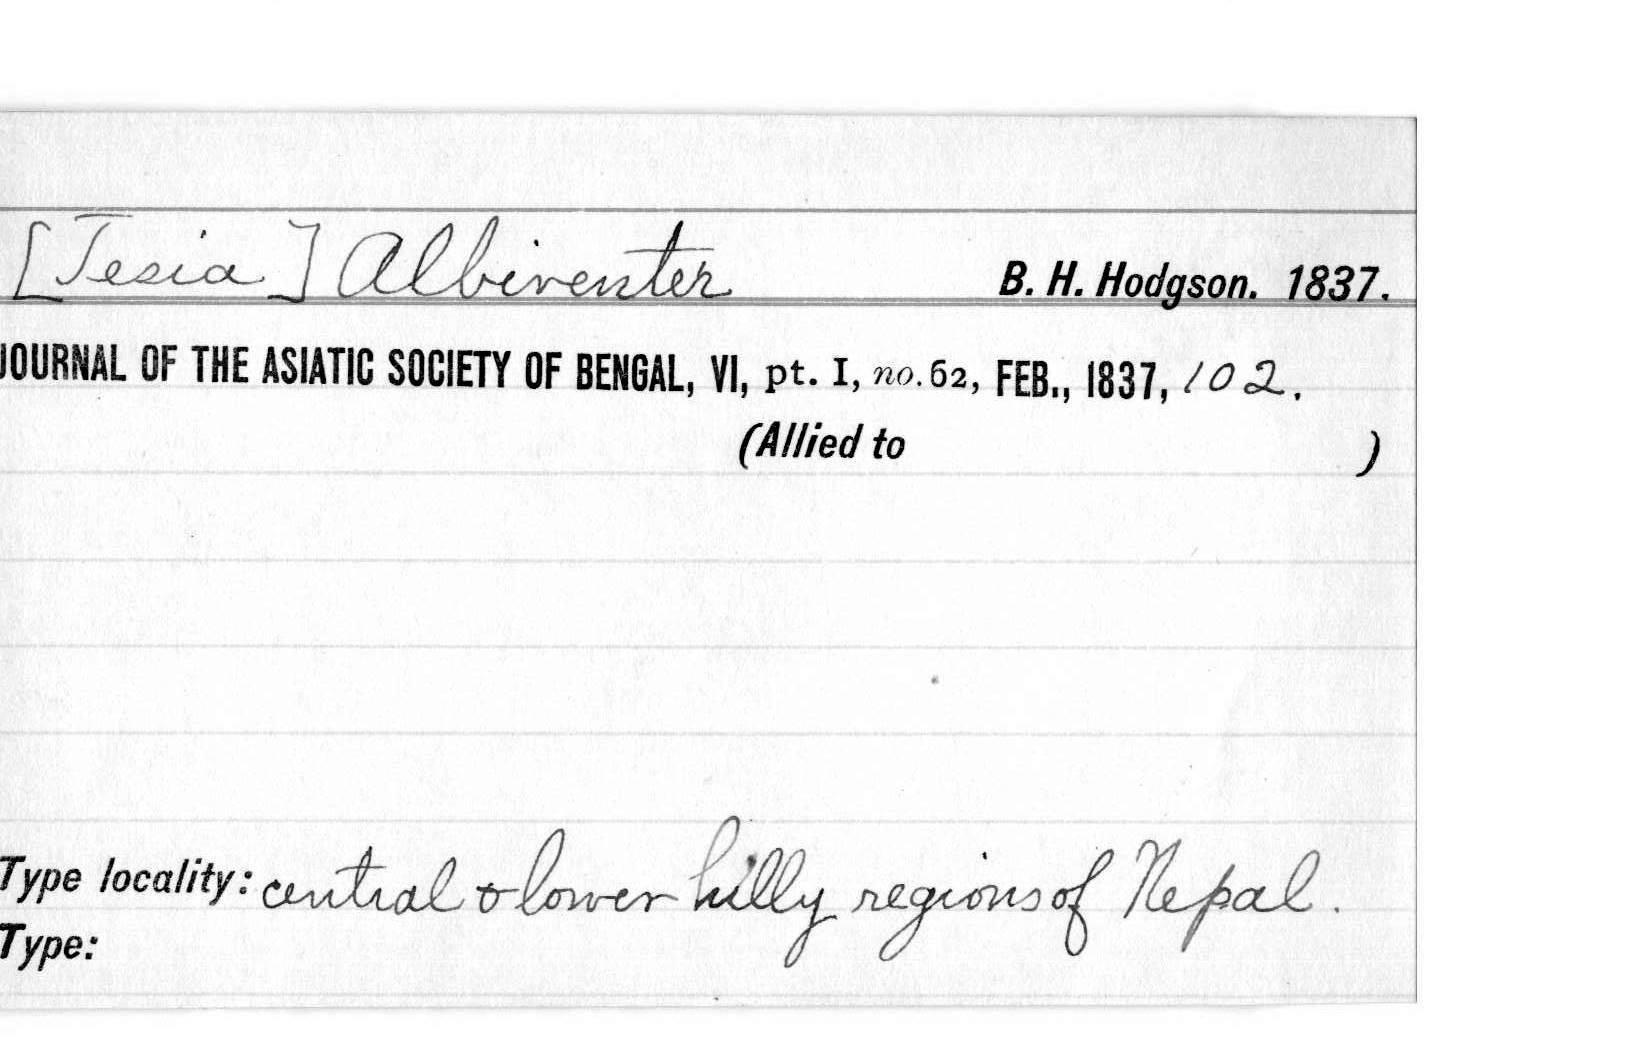 [Tesia] Albiventer B. H. Hodgson. 1837.
JOURNAL OF THE ASIATIC SOCIETY OF BENGAL, VI, pt. I, no. 62, FEB., 1837, 102.
(Allied to )
Type locality: central & lower hilly regions of Nepal.
Type: